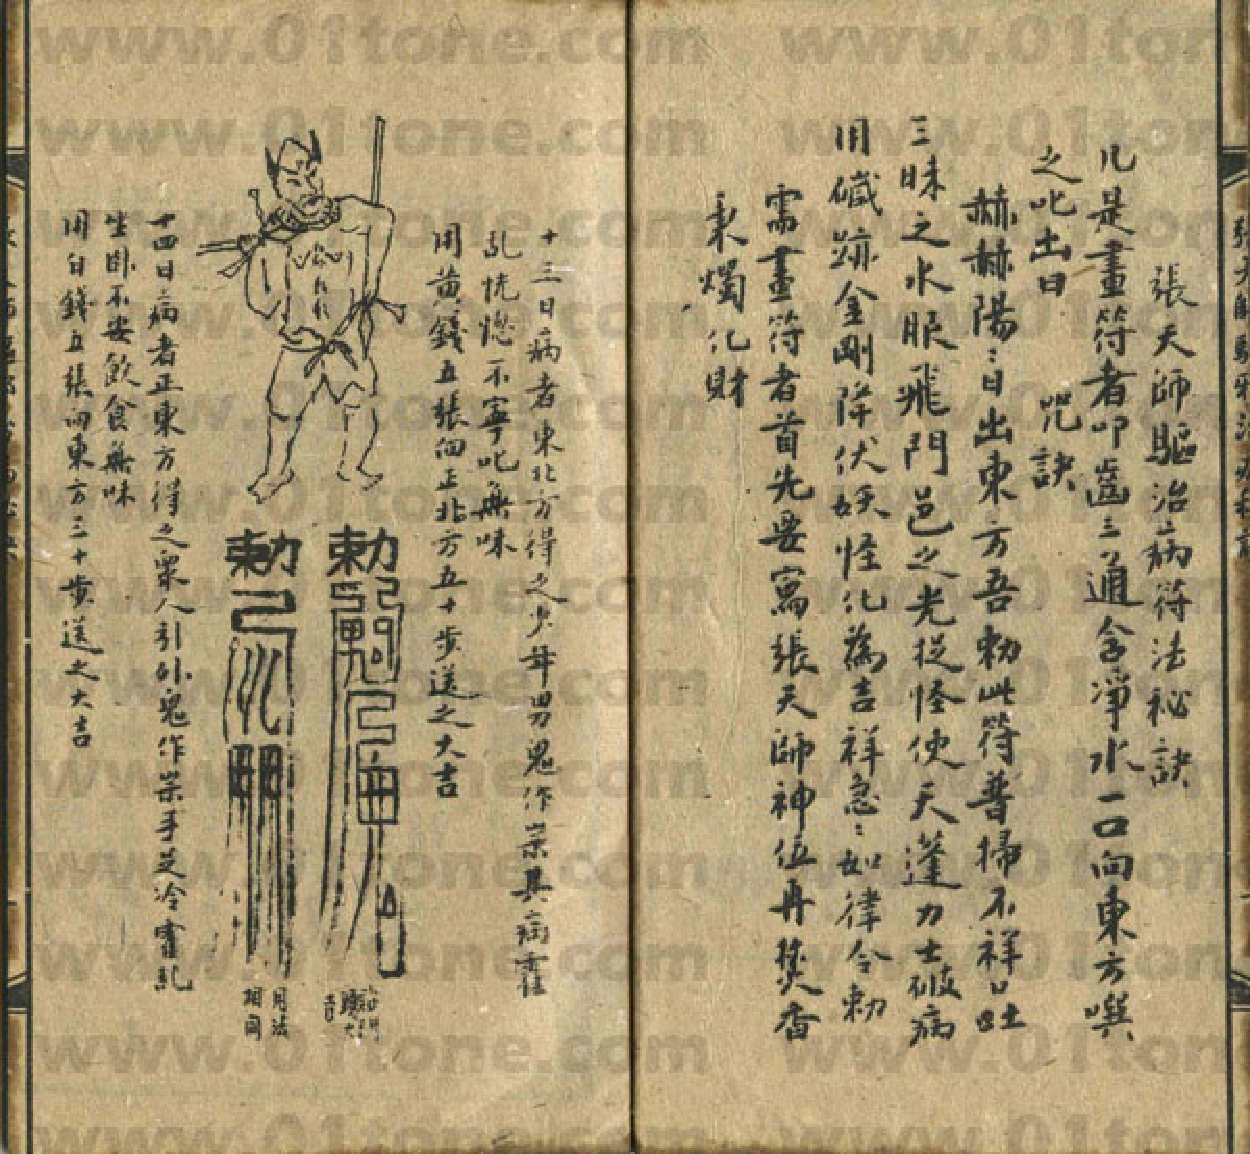 張天師驅治病符法秘訣
凡是畫符者叩齒三通含凈水一口向東方噀
之叱出曰 咒訣
赫赫陽〻日出東方吾勅此符普掃不祥口吐
三昧之水眼飛門邑之光捉怪使天蓬力士破病
用磩跡金剛降伏妖怪化為吉祥急〻如律令勅
需畫符者首先要寫張天師神位再焚香
秉燭化財
十三日病者東北方得之少年男鬼作祟其病霍
乱恍惚不寧吃無味
用黄錢五張向正北方五十步送之大吉
勅
勅
用法
相同
十四日病者正東方得之眾人引外鬼作祟手足冷霍乱
坐卧不安飲食無味
用白錢五張向東方三十步送之大吉
www.01tone.com